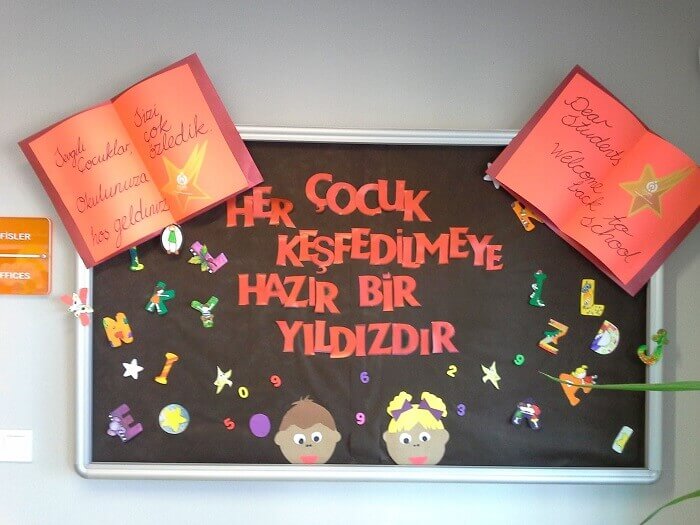 Sevgili
Çocuklar,
Okulunuza
hoş geldiniz
Sizi
çok
özledik.
Dear
Students
Welcome
back to
School
HER ÇOCUK
KEŞFEDİLMEYE
HAZIR BİR
YILDIZDIR
OFİSLER
OFFICES
9
6
2
0
5
0
9
6
2
3